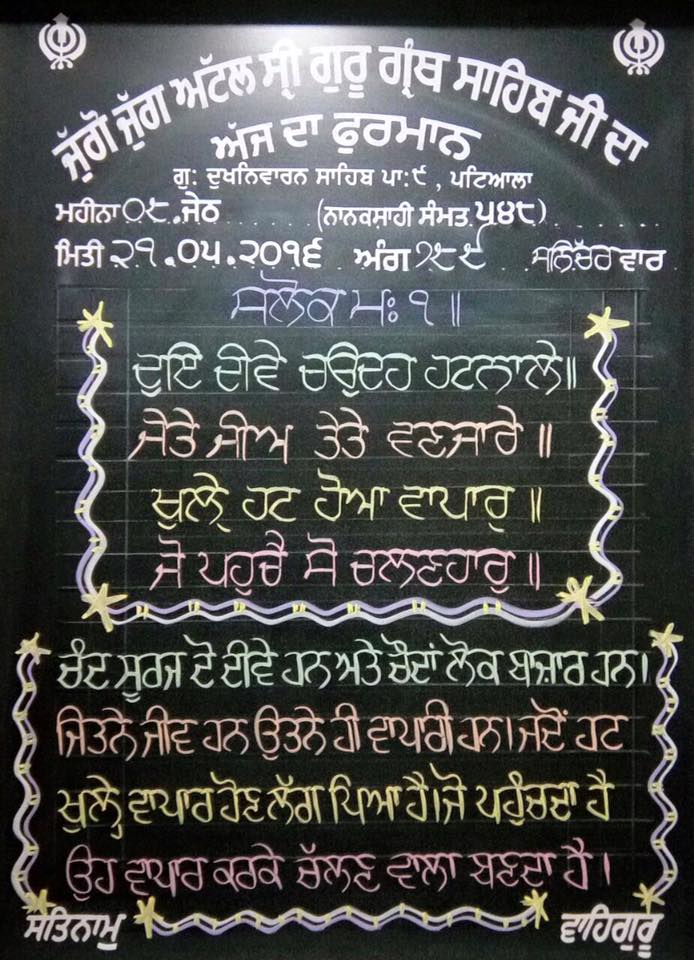 ਜੁੱਗੋ ਜੁੱਗ ਅਟੱਲ ਸ੍ਰੀ ਗੁਰੂ ਗ੍ਰੰਥ ਸਾਹਿਬ ਜੀ ਦਾ
ਅੱਜ ਦਾ ਫੁਰਮਾਨ
ਗੁ: ਦੁਖਨਿਵਾਰਨ ਸਾਹਿਬ ਪਾ:੯ , ਪਟਿਆਲਾ
ਮਹੀਨਾ ੦੮.ਜੇਠ (ਨਾਨਕਸਾਹੀ ਸੰਮਤ ੫੪੮)
ਮਿਤੀ ੨੧.੦੫.੨੦੧੬ ਅੰਗ ੭੮੯ ਸਨਿੱਚਰ ਵਾਰ
ਸਲੋਕ ਮਃ ੧ ॥
ਦੁਇ ਦੀਵੇ ਚਉਦਹ ਹਟਨਾਲੇ॥
ਜੇਤੇ ਜੀਅ ਤੇਤੇ ਵਣਜਾਰੇ ॥
ਖੁਲ੍ਹੇ ਹਟ ਹੋਆ ਵਾਪਾਰੁ ॥
ਜੋ ਪਹੁਚੈ ਸੋ ਚਲਣਹਾਰੁ ॥
ਚੰਦ ਸੂਰਜ ਦੋ ਦੀਵੇ ਹਨ ਅਤੇ ਚੌਦਾਂ ਲੋਕ ਬਜ਼ਾਰ ਹਨ।
ਜਿਤਨੇ ਜੀਵ ਹਨ ਉਤਨੇ ਹੀ ਵਾਪਾਰੀ ਹਨ।ਜਦੋਂ ਹਟ
ਖੁਲ੍ਹੇ ਵਾਪਾਰ ਹੋਣ ਲੱਗ ਪਿਆ ਹੈ।ਜੋ ਪਹੁੰਚਦਾ ਹੈ
ਉਹ ਵਾਪਾਰ ਕਰਕੇ ਚੱਲਣ ਵਾਲਾ ਬਣਦਾ ਹੈ।
ਸਤਿਨਾਮੁ ਵਾਹਿਗੁਰੂ